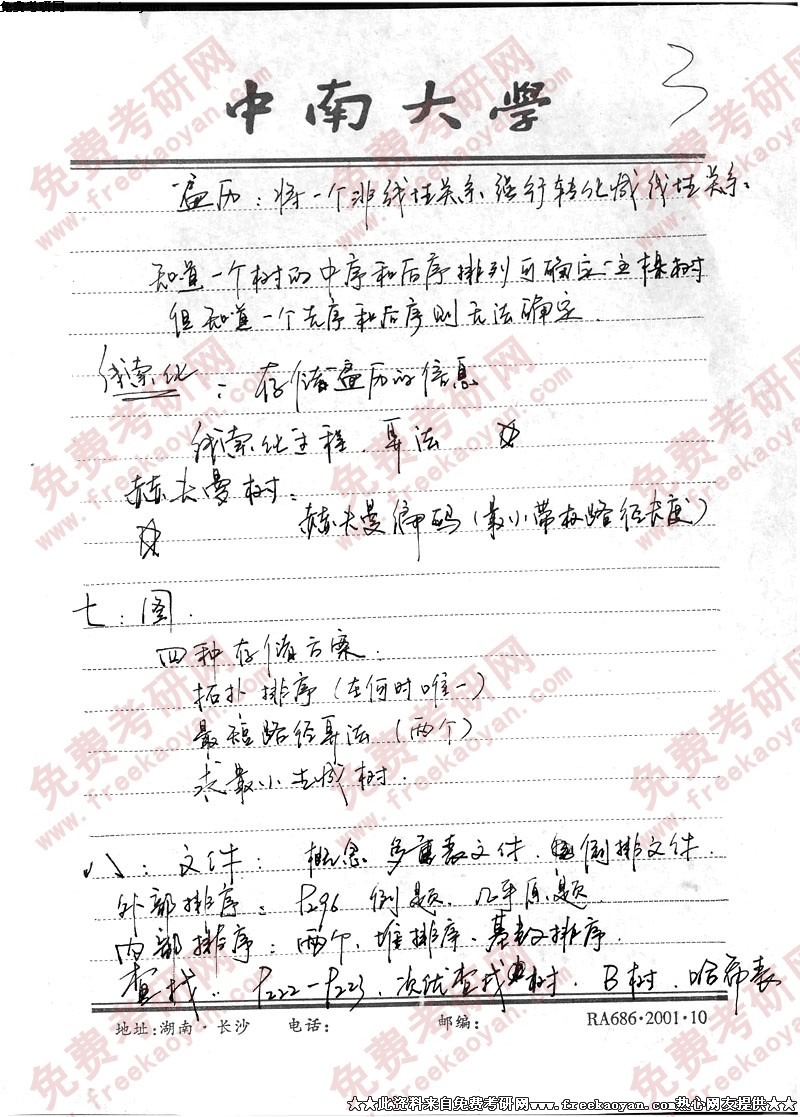 免费考研网www.freekaoyan.com
3
中南大學
遍历：将一个非线性关系强行转化成线性关系.
知道一个树的中序和后序排列可确定这棵树
但知道一个先序和后序则无法确定.
线索化：存储遍历的信息
线索化过程.算法 ☆
赫夫曼树：
☆ 赫夫曼编码(最小带权路径长度)
七：图.
四种存储方案.
拓扑排序(在何时唯一)
最短路径算法(两个)
求最小生成树.
八：文件：概念 多重表文件.倒排文件.
外部排序：P296 例题.几乎原题.
内部排序：两个.堆排序.基数排序.
查找：P222-P223.次优查找树.B树.哈希表
地址:湖南·长沙 电话: 邮编: RA686·2001·10
★★此资料来自免费考研网www.freekaoyan.com热心网友提供★★